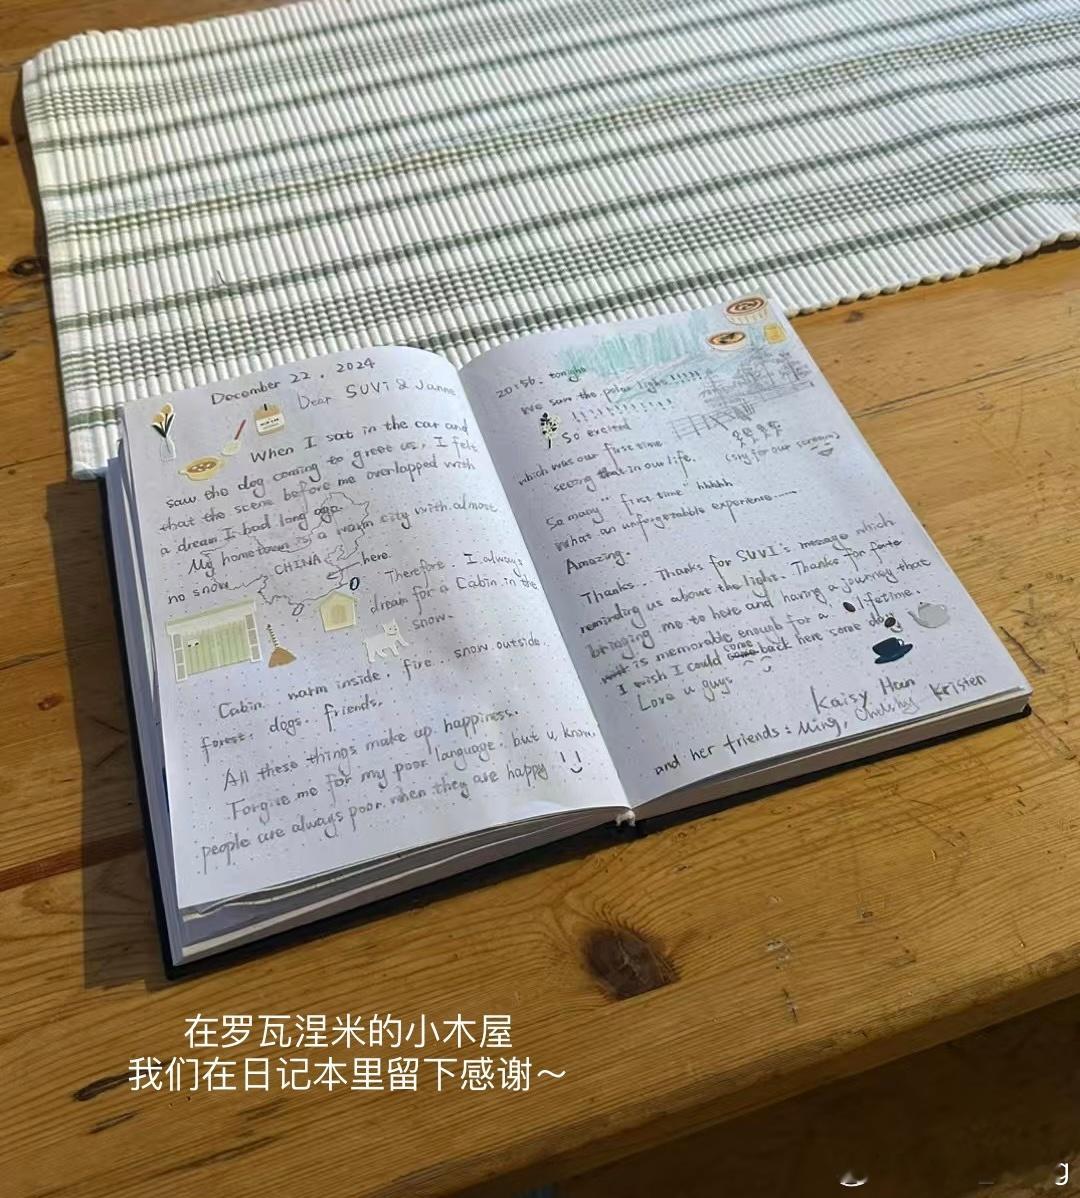 December 22, 2024
Dear SUVI & Janne
When I sat in the car and
saw the dog coming to greet us, I felt
that the scene before me overlapped with
a dream I had long ago.
My hometown is a warm city with almost
no snow.
CHINA
here.
Therefore, I always
dream for a Cabin in the
snow.
Cabin. warm inside. fire. snow outside.
forest. dogs. friends.
All these things make up happiness.
Forgive me for my poor language. but u know,
people are always poor when they are happy
20:56. tonight
We saw the polar light!!!!!
!!!!!!!!!!!
So excited
which was our first time
seeing that in our life.
(sry for our scream)
So many "first time" hhhhh
What an unforgettable experience......
Amazing.
Thanks.. Thanks for SUVI's message which
reminding us about the light. Thanks for fate
bringing me to here and having a journey that
is memorable enough for a lifetime.
I wish I could come back here some day
Love u guys
Kaisy Han
and her friends: Ming, Chelshy Kristen
在罗瓦涅米的小木屋
我们在日记本里留下感谢～
g